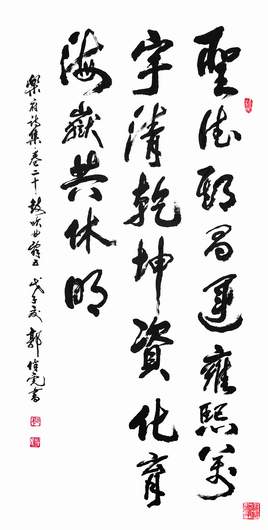 聖德期昌運雍熙萬
宇清乾坤資化育
海嶽共休明
樂府詩集卷二十鼓吹曲辭五 戊子 郭 書